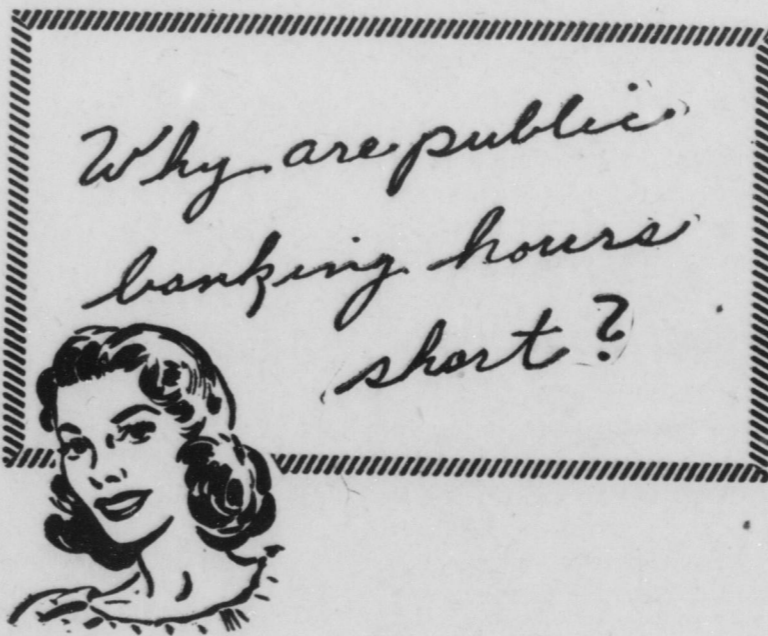 Why are public
banking hours
short?